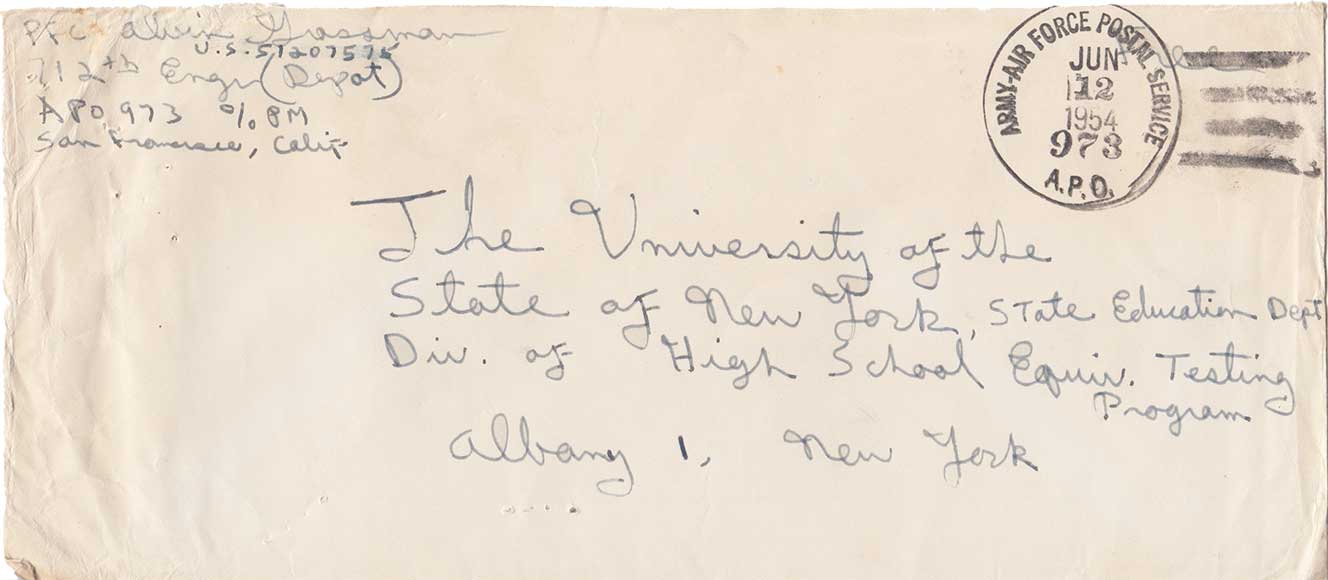 Pfc Alvin Grossman
U.S. 51207575
712th Engr (Depot)
APO 973 c/o PM
San Francisco, Calif
ARMY-AIR FORCE POSTAL SERVICE
JUN
12
1954
973
A.P.O.
The University of the
State of New York, State Education Dept
Div. of High School Equiv. Testing
Program
Albany 1, New York